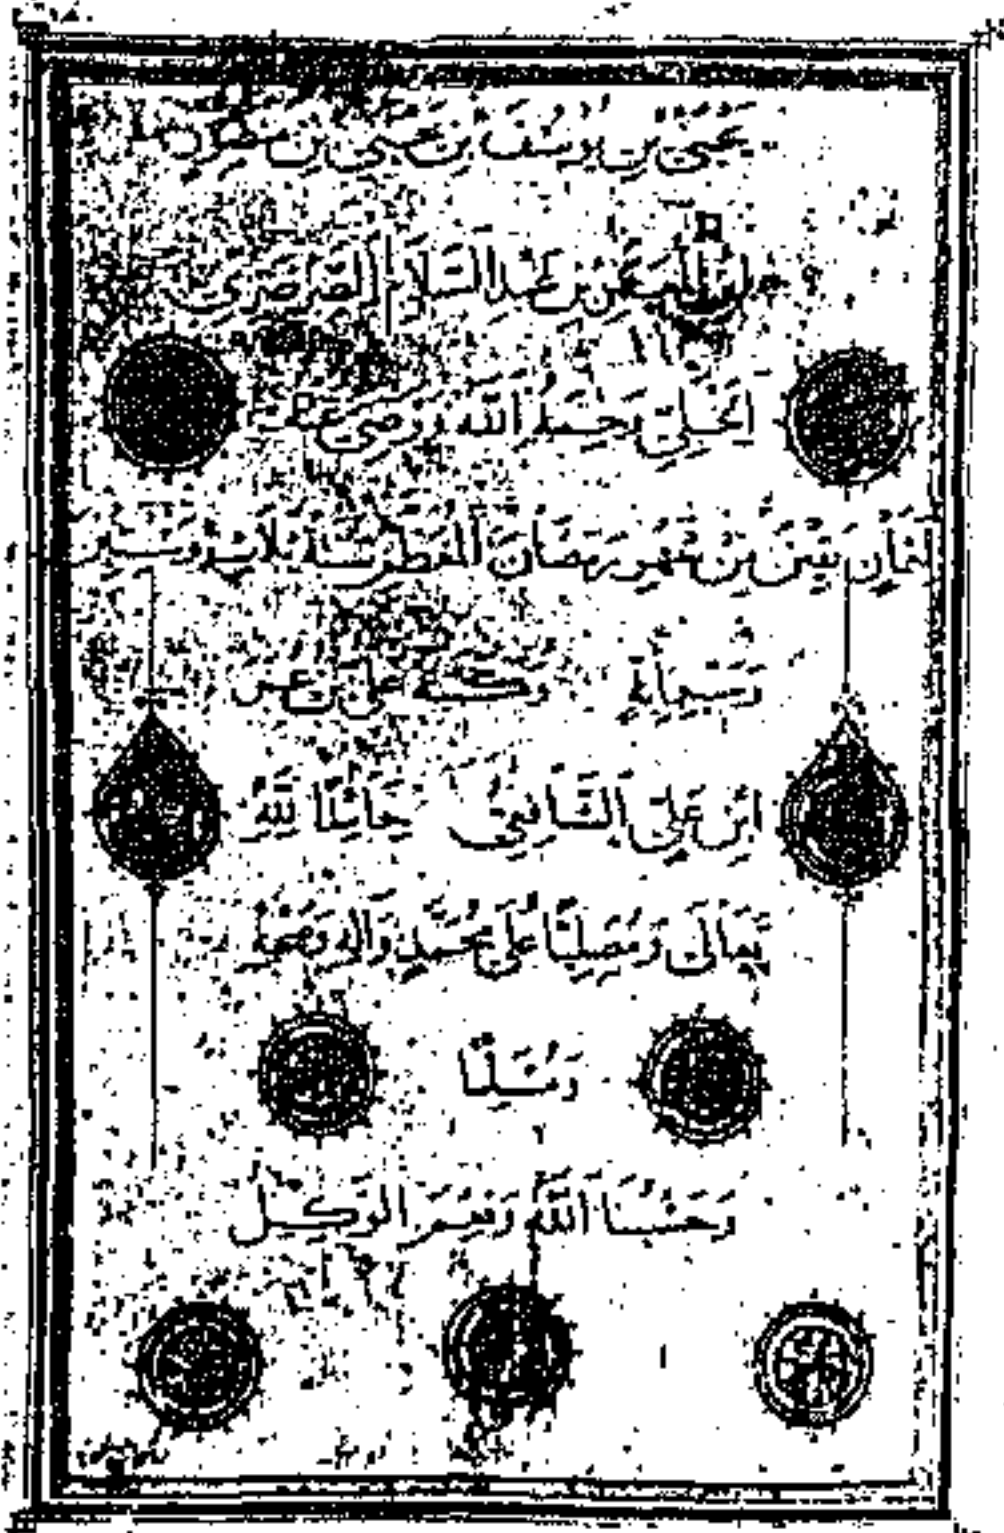 يَحْيَى بْنِ يُوسُفَ بْنِ يَحْيَى بْنِ مَنْصُورِ
بْنِ الْمُعَمَّرِ بْنِ عَبْدِ السَّلَامِ الصَّرْصَرِيِّ
الْحَنْبَلِيِّ رَحِمَهُ اللَّهُ وَرَضِيَ عَنْهُ
لِثَمَانٍ بَقِينَ مِنْ شَهْرِ رَمَضَانَ الْمُعَظَّمِ سَنَةَ ثَلَاثٍ وَسِتِّينَ
وَسَبْعِمِائَةٍ وَكَتَبَهُ عَلِيُّ بْنُ عُمَرَ
ابْنِ عَلِيٍّ الشَّافِعِيُّ حَامِدًا لِلَّهِ
تَعَالَى وَمُصَلِّيًا عَلَى مُحَمَّدٍ وَآلِهِ وَصَحْبِهِ
وَمُسَلِّمًا
وَحَسْبُنَا اللَّهُ وَنِعْمَ الْوَكِيلُ